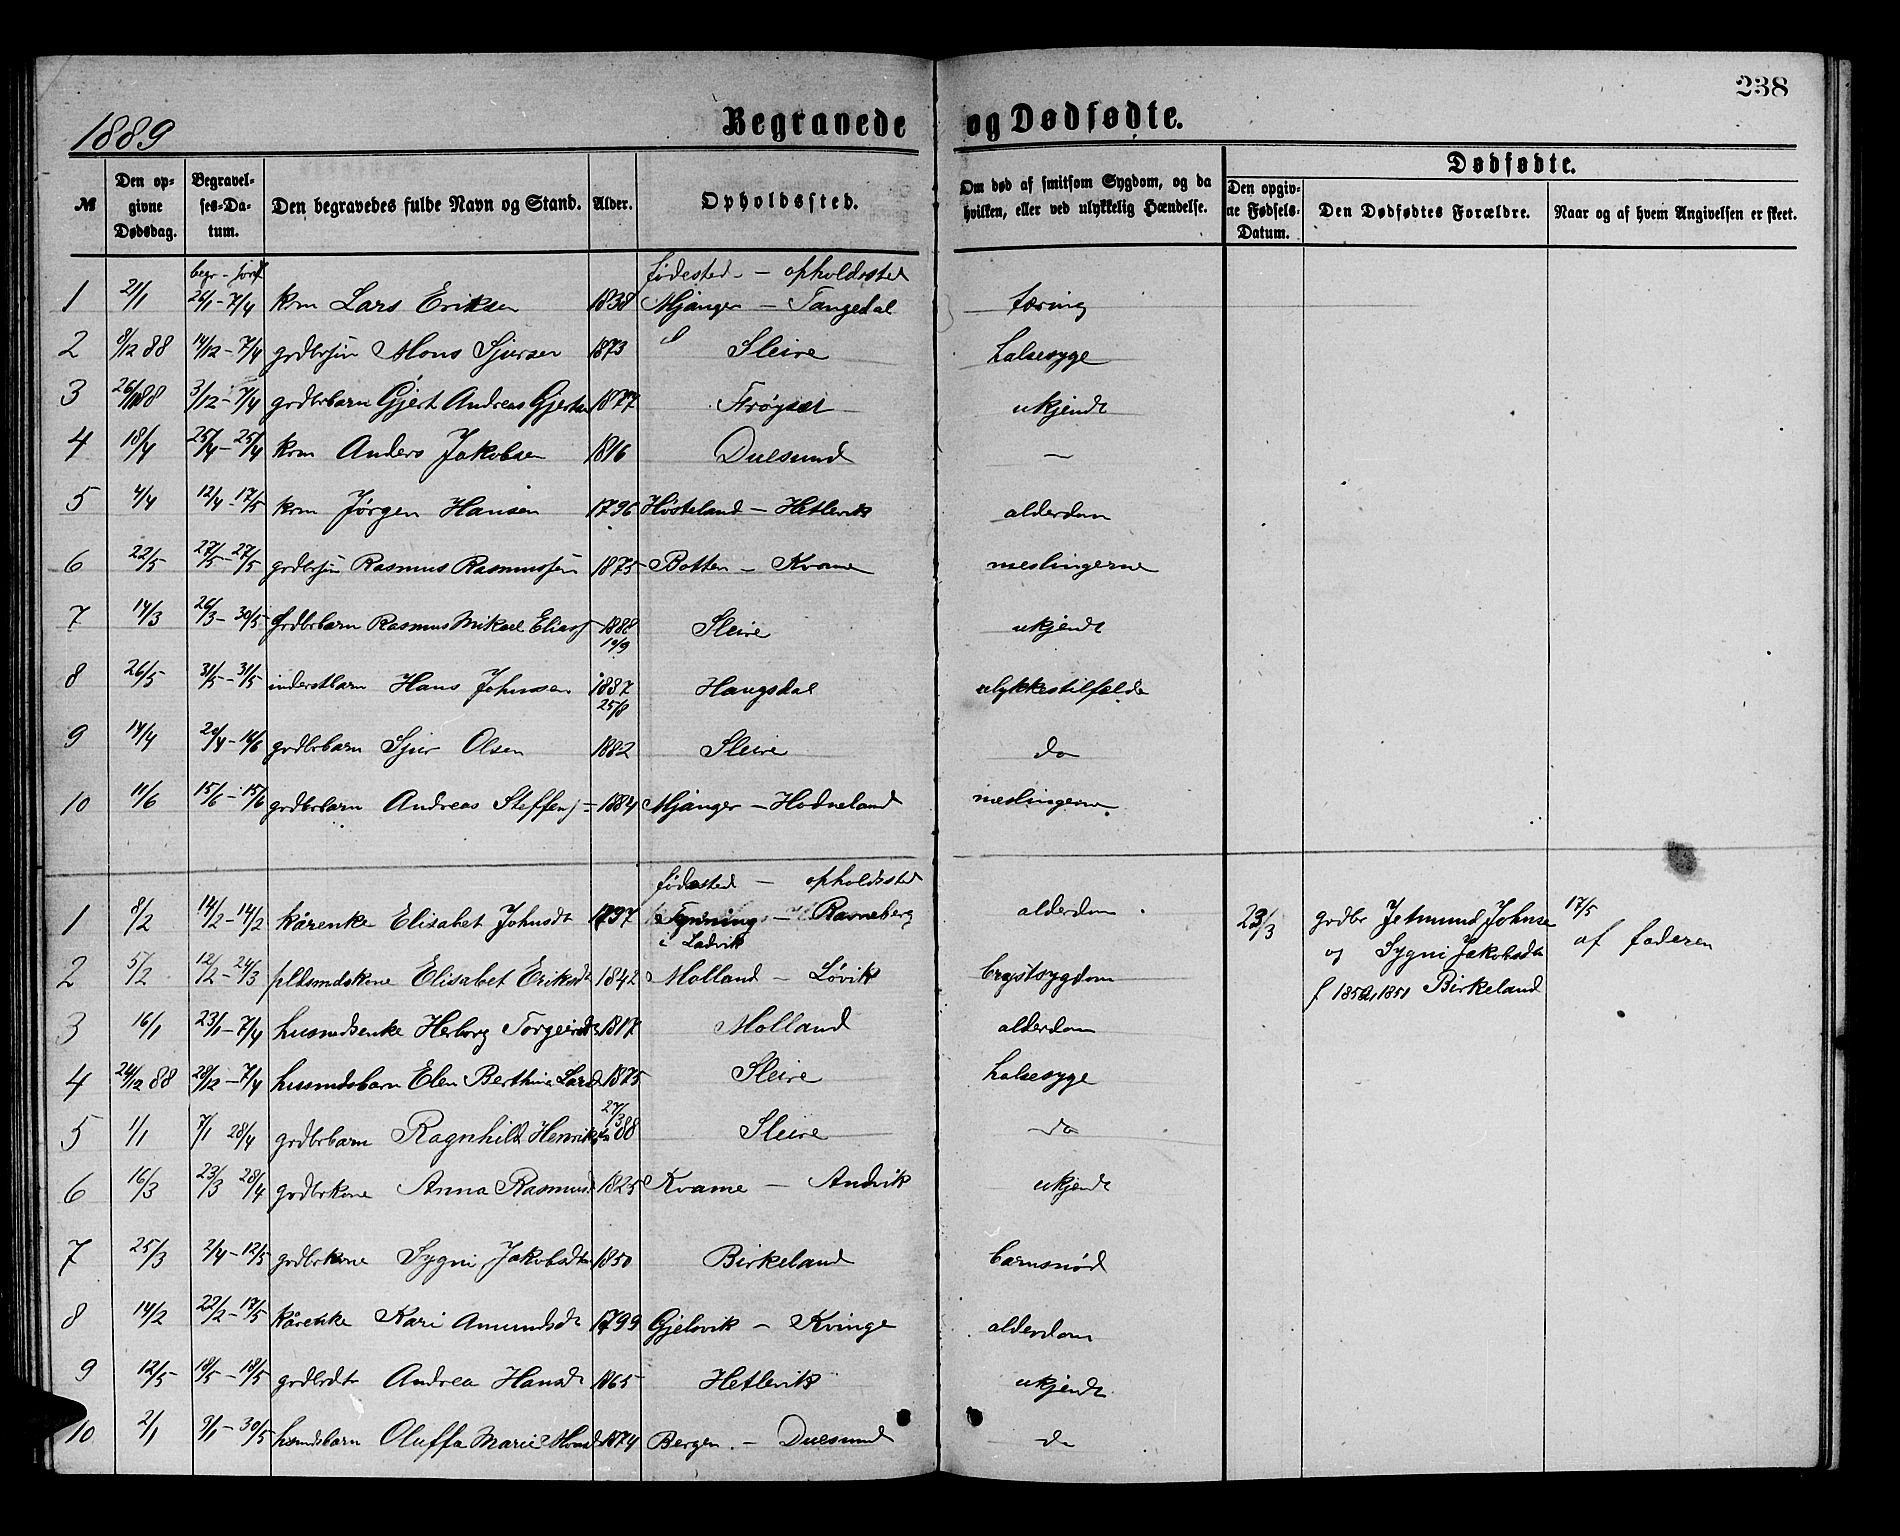 238
1889 Begravede og Dødfødte.
№ Den opgivne Dødsdag. Begravelses-Datum. Den begravedes fulde Navn og Stand. Alder. Opholdssted. Om død af smitsom Sygdom, og da hvilken, eller ved ulykkelig Hændelse. Dødfødte. Den opgivne Fødsels-Datum. Den Dødfødtes Forældre. Naar og af hvem Angivelsen er skeet.
begr - fødested - opholdssted
1 21/1 26/1 - 7/4 krm Lars Eriksen 1838 Mjanger - Tangedal tæring
2 8/12 88 14/12 - 7/4 grdbrsøn Mons Sjursen 1873 Sleire halsesyge
3 26/11 88 3/12 - 7/4 grdbrbarn Gjert Andreas Gjertsen 1877 Frøyset ukjendt
4 18/4 25/4 - 25/4 krm Anders Jakobsen 1816 Duesund —
5 4/4 12/4 - 17/5 krm Jørgen Hansen 1796 Høsteland - Hetlevik alderdom
6 22/5 27/5 - 27/5 grdbrsøn Rasmus Rasmussen 1875 Botten - Kvame meslingerne
7 14/3 26/3 - 30/5 grdbrbarn Rasmus Mikael Elias 1888 19/9 Sleire ukjendt
8 26/5 31/5 - 31/5 inderstbarn Hans Johnsen 1887 25/8 Haugsdal ulykkestilfælde
9 14/4 20/4 - 10/6 grdbrbarn Sjur Olsen 1882 Sleire do
10 11/6 15/6 - 15/6 grdbrbarn Andreas Steffens 1884 Mjanger - Hodneland meslingerne
fødested - opholdssted
1 8/2 14/2 - 14/2 kårenke Elisabet Johnsdt 1797 Tynning - Ravneberg alderdom 23/3 grdbr Jetmund Johnse 17/5
i Ladvik og Sygni Jakobsdtr af faderen
2 5/2 12/2 - 24/3 pldsmdskone Elisabet Eriksdt 1842 Molland - Løvik brystsygdom f 1852, 1851 Birkeland
3 16/1 23/1 - 7/4 husmdsenke Herborg Torgeirsdt 1817 Molland alderdom
4 24/12 88 28/12 - 7/4 husmdsbarn Elen Berthine Larsd 1875 Sleire halsesyge
5 1/1 7/1 28/4 grdbrbarn Ragnhild Henriksdtr 27/3 88 Sleire do
6 16/3 23/3 28/4 grdbrkone Anna Rasmusd 1825 Kvame - Andvik ukjendt
7 25/3 2/4 - 12/5 grdbrkone Sygni Jakobsdtr 1850 Birkeland barnsnød
8 14/2 22/2 - 17/5 kårenke Kari Amundsdt 1799 Gjelsvik - Kvinge alderdom
9 12/5 18/5 - 18/5 grdbrdtr Andrea Hansdt 1865 Hetlevik ukjendt
10 2/1 9/1 - 30/5 husmdsbarn Oluffa Marie Hansd 1874 Bergen - Duesund do